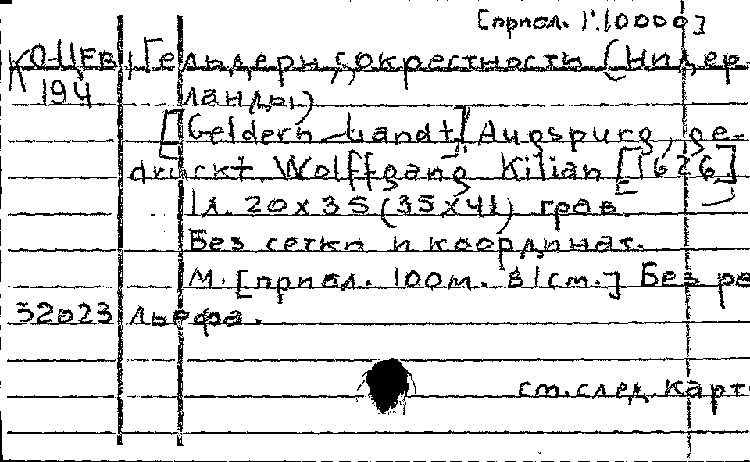 [прибл. 1:10000]
КО-ЦЕВ Гельдерн, с окрестность (Нидер-
194 ланды)
[Geldern-Landt] Augspurg, ge-
druckt Wolffgang Kilian [1626]
1л. 20x35 (35x41) грав.
Без сетки и координат.
М. [прибл. 100м. в 1см.] Без ре
32023 льефа.
см. след. карт